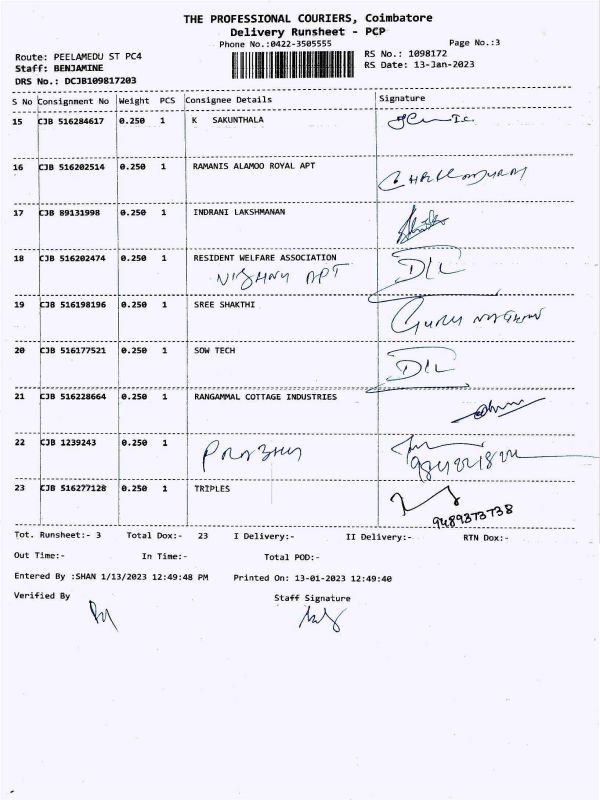 THE PROFESSIONAL COURIERS, Coimbatore
Delivery Runsheet - PCP
Phone No.:0422-3505555
Page No.:3
Route: PEELAMEDU ST PC4
RS No.: 1098172
Staff: BENJAMINE
RS Date: 13-Jan-2023
DRS No.: DCJB109817203
S No Consignment No Weight PCS Consignee Details Signature
15 CJB 516284617 0.250 1 K SAKUNTHALA
16 CJB 516202514 0.250 1 RAMANIS ALAMOO ROYAL APT
17 CJB 89131998 0.250 1 INDRANI LAKSHMANAN
18 CJB 516202474 0.250 1 RESIDENT WELFARE ASSOCIATION D/L
VISHNU APT
19 CJB 516198196 0.250 1 SREE SHAKTHI GURU NATHAN
20 CJB 516177521 0.250 1 SOW TECH D/L
21 CJB 516228664 0.250 1 RANGAMMAL COTTAGE INDUSTRIES
22 CJB 1239243 0.250 1 PRABHU
23 CJB 516277128 0.250 1 TRIPLES
9489373738
Tot. Runsheet:- 3 Total Dox:- 23 I Delivery:- II Delivery:- RTN Dox:-
Out Time:- In Time:- Total POD:-
Entered By :SHAN 1/13/2023 12:49:48 PM Printed On: 13-01-2023 12:49:40
Verified By Staff Signature